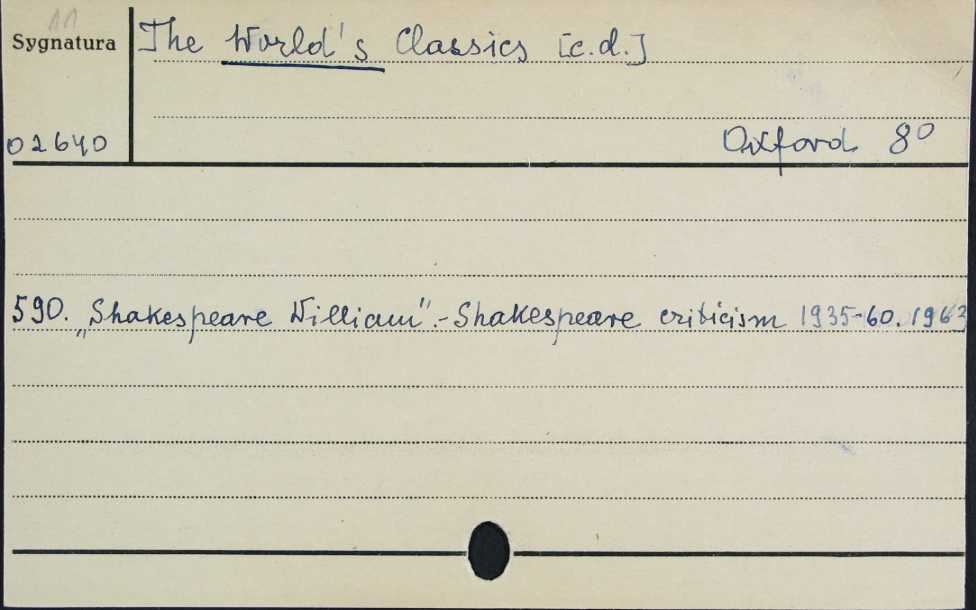 11
Sygnatura
The World's Classics [c.d.]
02640
Oxford 8°
590. „Shakespeare William".-Shakespeare criticism 1935-60. 1963